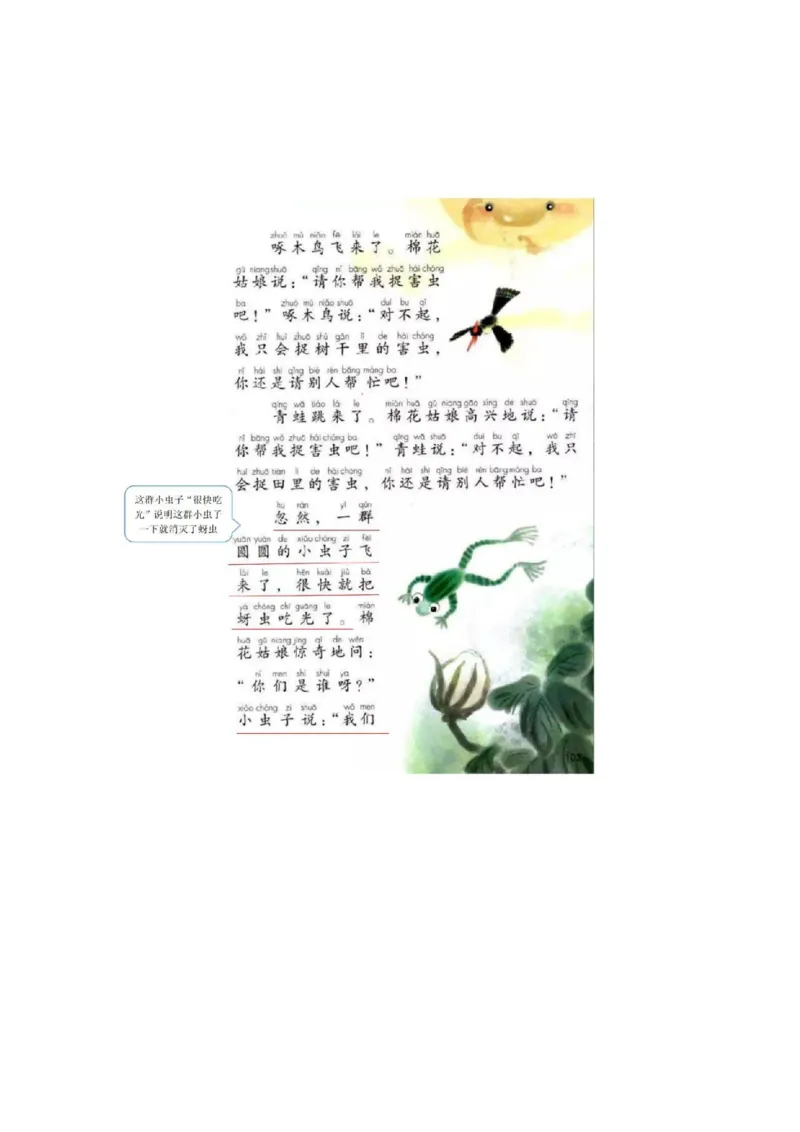 zhuó mù niǎo fēi lái le mián huā
啄木鸟飞来了。棉花
gū niang shuō qǐng nǐ bāng wǒ zhuō hài chóng
姑娘说：“请你帮我捉害虫
ba zhuó mù niǎo shuō duì bu qǐ
吧！”啄木鸟说：“对不起，
wǒ zhǐ huì zhuō shù gàn lǐ de hài chóng
我只会捉树干里的害虫，
nǐ hái shi qǐng bié rén bāng máng ba
你还是请别人帮忙吧！”
qīng wā tiào lái le mián huā gū niang gāo xìng de shuō qǐng
青蛙跳来了。棉花姑娘高兴地说：“请
nǐ bāng wǒ zhuō hài chóng ba qīng wā shuō duì bu qǐ wǒ zhǐ
你帮我捉害虫吧！”青蛙说：“对不起，我只
huì zhuō tián lǐ de hài chóng nǐ hái shi qǐng bié rén bāng máng ba
会捉田里的害虫，你还是请别人帮忙吧！”
这群小虫子“很快吃
光”说明这群小虫子
一下就消灭了蚜虫
hū rán yì qún
忽然，一群
yuán yuán de xiǎo chóng zi fēi
圆圆的小虫子飞
lái le hěn kuài jiù bǎ
来了，很快就把
yá chóng chī guāng le mián
蚜虫吃光了。棉
huā gū niang jīng qí de wèn
花姑娘惊奇地问：
nǐ men shì shuí ya
“你们是谁呀？”
xiǎo chóng zi shuō wǒ men
小虫子说：“我们
103